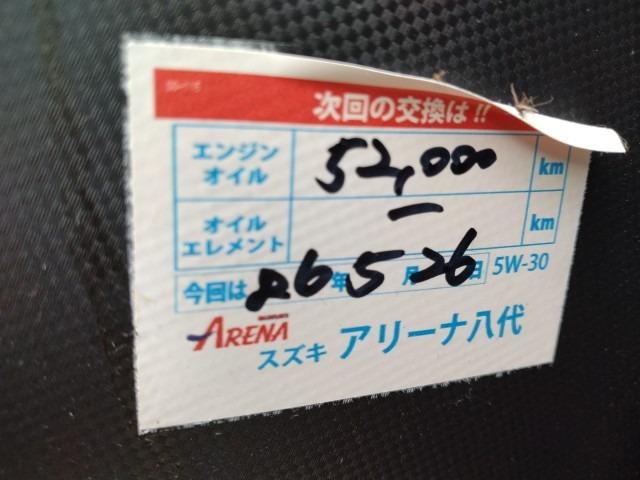 次回の交換は!!
エンジンオイル 52,000 km
オイルエレメント ー km
今回は 26年 5月 26日 5W-30
SUZUKI ARENA
スズキ アリーナ八代